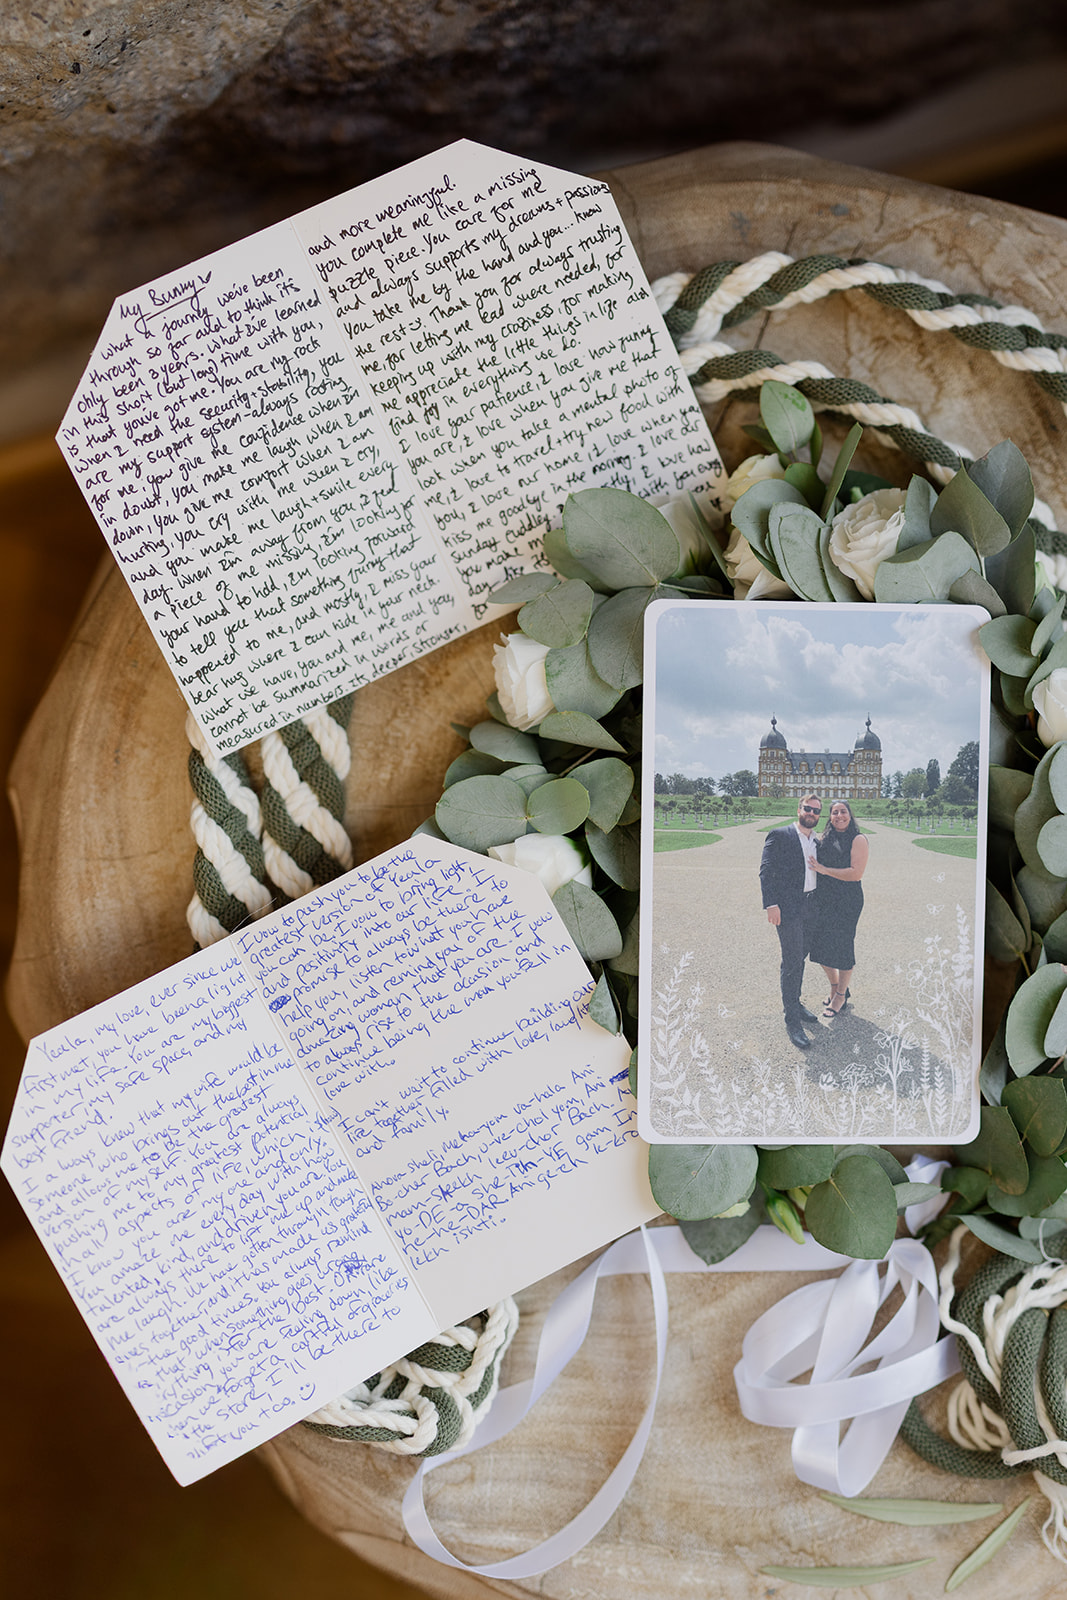 My Bunny
What a journey we've been
through so far and to think it's
only been 3 years. What I've learned
in this short (but long) time with you,
is that you've got me. You are my rock
when I need the security + stability, you
are my support system - always rooting
for me, you give me confidence when I'm
in doubt, you make me laugh when I am
down, you give me comfort when I am
hurting, you cry with me when I cry,
and you make me laugh + smile every
day. When I'm away from you, I feel
a piece of me missing. I'm looking for
your hand to hold, I'm looking forward
to tell you that something funny that
happened to me, and mostly, I miss your
bear hug where I can hide in your neck.
What we have, you and me, me and you,
cannot be summarized in words or
measured in numbers. Its deeper, stronger,
and more meaningful.
You complete me like a missing
puzzle piece. You care for me
and always supports my dreams + passions
You take me by the hand and you... know
the rest. Thank you for always trusting
me, for letting me lead where needed, for
keeping up with my craziness, for making
me appreciate the little things in life and
find joy in everything we do.
I love your patience, I love how funny
you are, I love when you give me that
look when you take a mental photo of
me, I love to travel + try new food with
you, I love our home, I love when you
kiss me goodbye in the morning, I love our
Sunday cuddles I love how
you make m with you
day like its
for
Yeala, my love, ever since we
first met, you have been a light
in my life. You are my biggest
supporter, my safe space, and my
best friend.
I always knew that my wife would be
someone who brings out the best in me
and allows me to be the greatest
version of myself. You are always
pushing me to my greatest potential
in all aspects of life, which is how
I know you are my one and only.
You amaze me every day with how
talented, kind, and driven you are. You
are always there to lift me up and make
me laugh. We have gotten through tough
times together, and it has made us grateful
the good times. You always remind
that when something goes wrong
everything is for the best. On rare
occasion you are feeling down like
when we forget a cartful of groceries
the store, I'll be there to
lift you too.
I vow to push you to be the
greatest version of Yeala
you can be. I vow to bring light
and positivity into our life. I
promise to always be there to
help you, listen to what you have
going on, and remind you of the
amazing woman that you are. I vow
to always rise to the occasion and
continue being the man you fell in
love with.
I can't wait to continue building our
life together filled with love, laughter
and family.
Ahova sheli, me
Bo-cher Bach, u-ve-chol yom, Ani
Lev-chor Bach.
yo-DE-a she-Tih-YE gam
he-he-DAR. Ani
Lekh ishti.